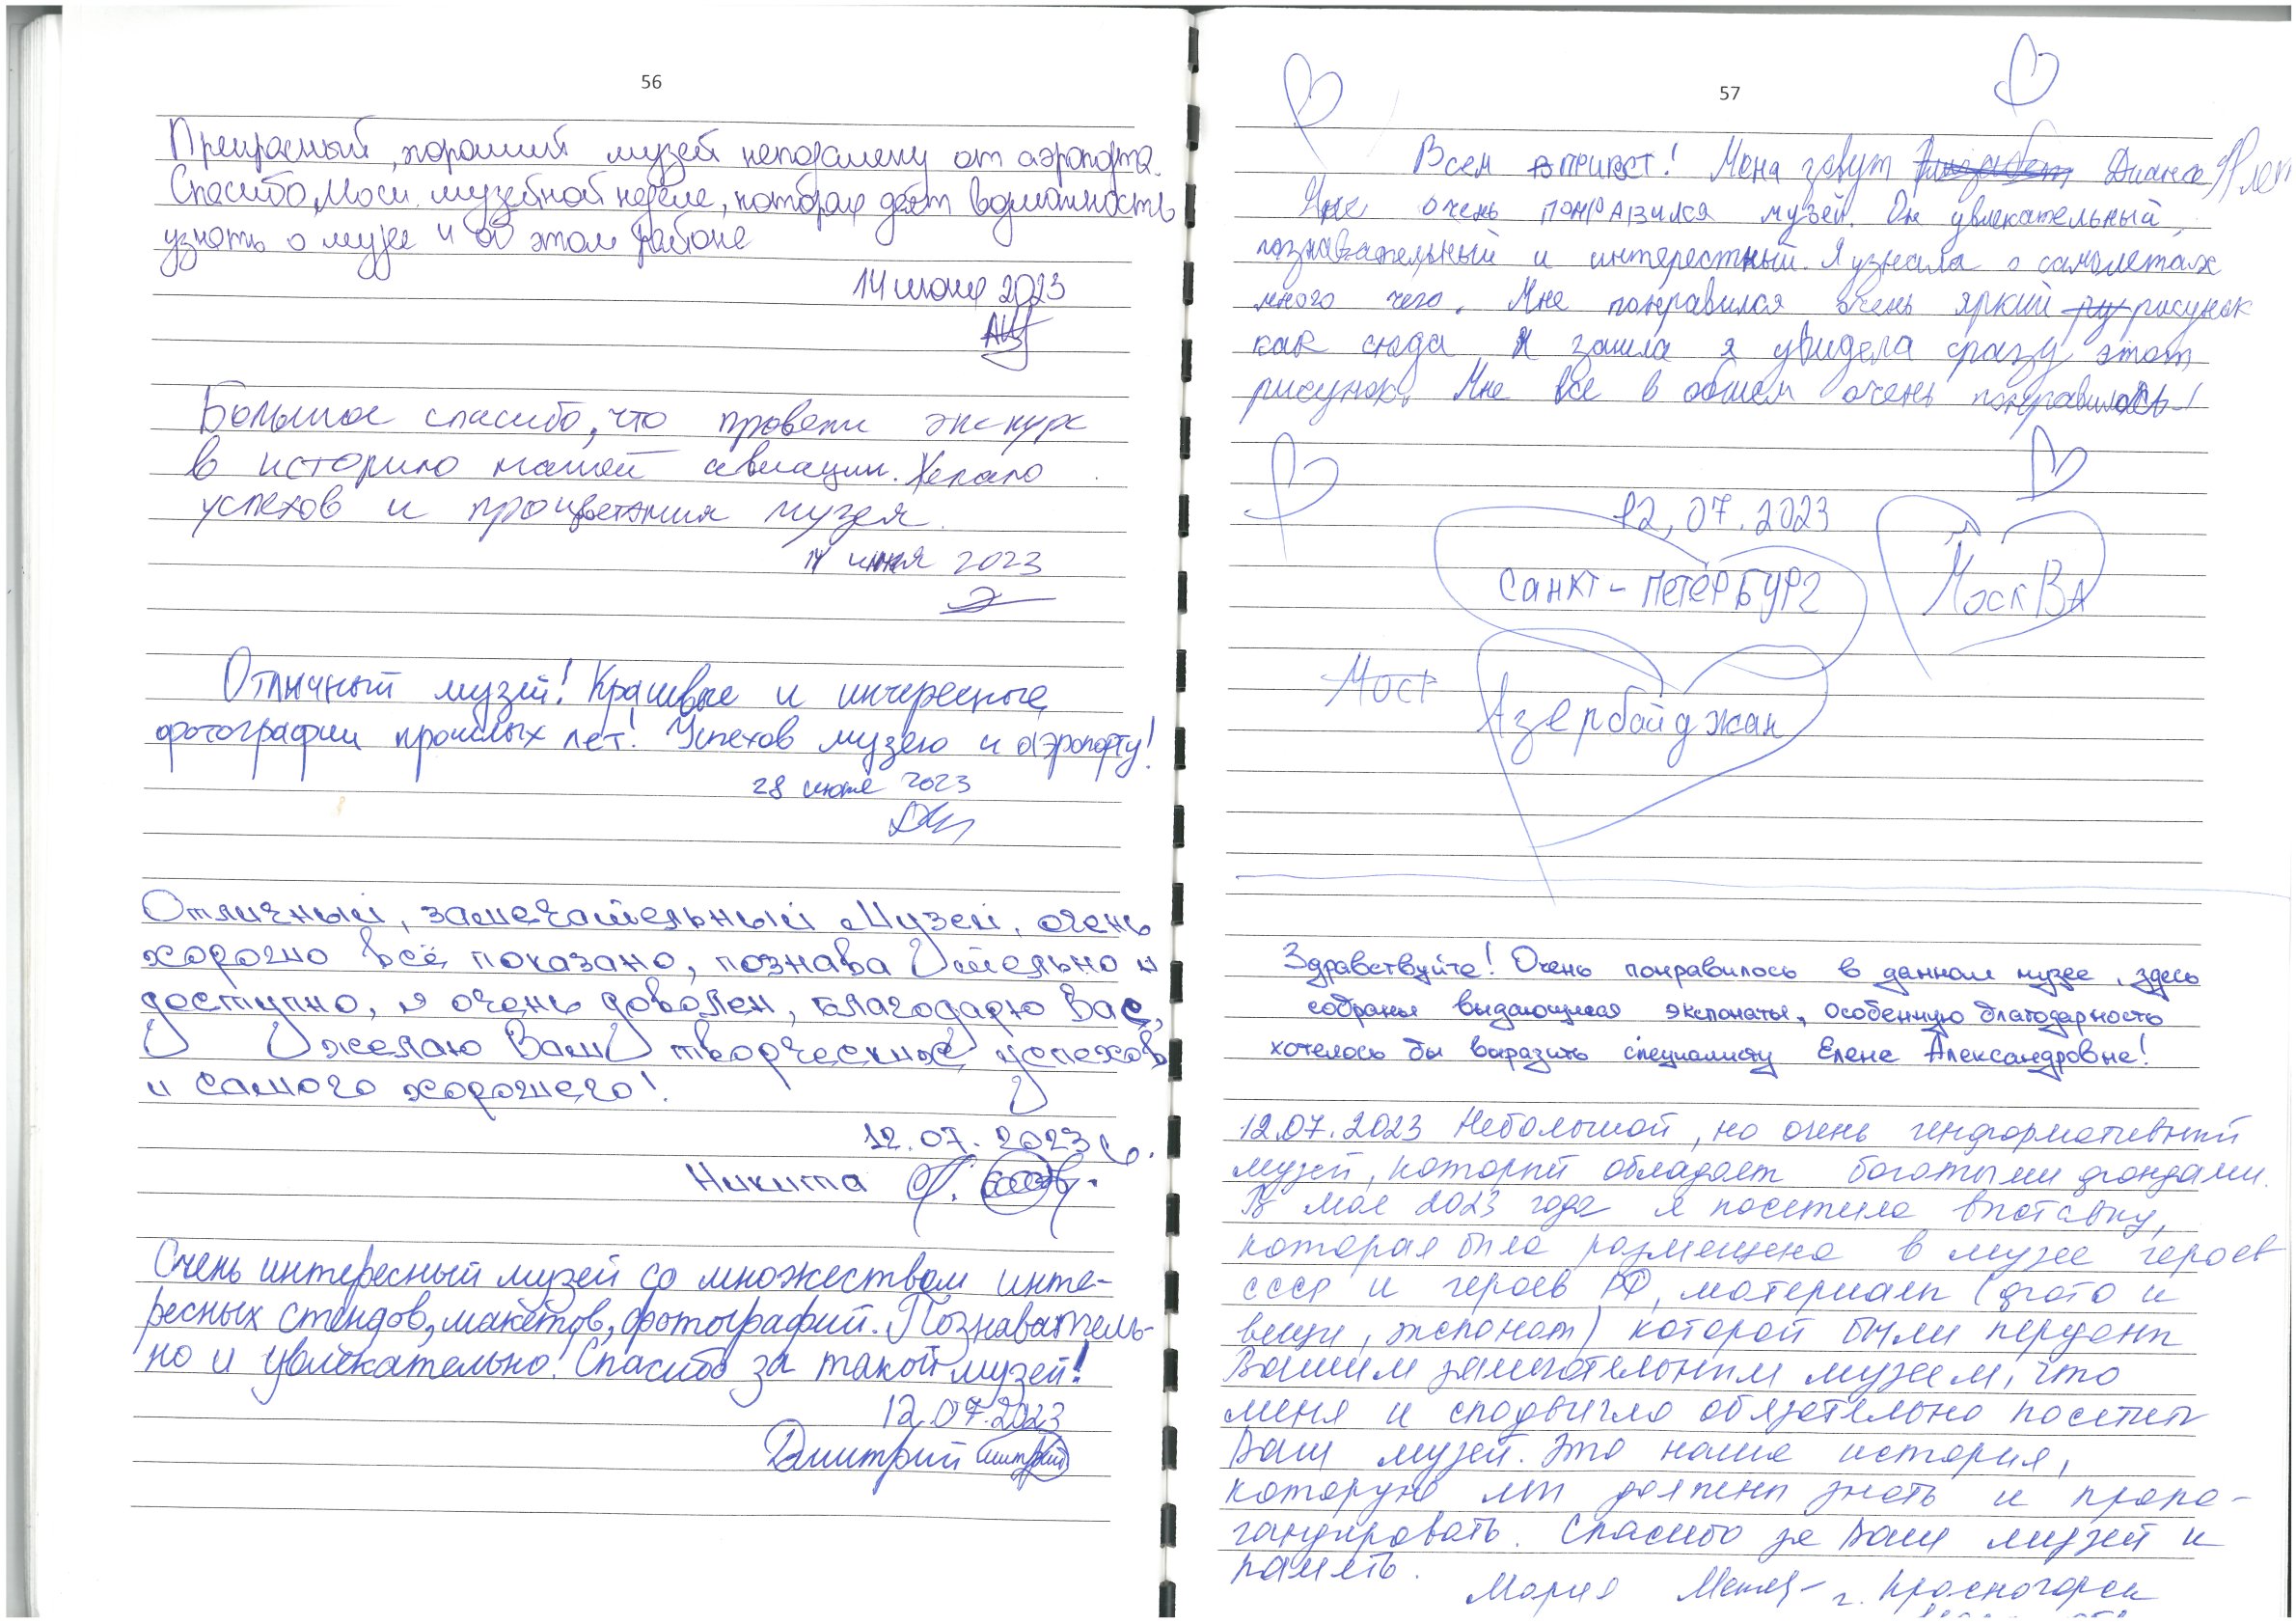 56
Прекрасный, хороший музей неподалеку от аэропорта.
Спасибо, Моск. музейной неделе, которая даёт возможность
узнать о музее и об этом районе
14 июня 2023
Большое спасибо, что провели экскурс
в историю нашей авиации. Желаю
успехов и процветания музея.
14 июня 2023
Отличный музей! Красивые и интересные
фотографии прошлых лет! Успехов музею и аэропорту!
28 июня 2023
Отличный, замечательный Музей, очень
хорошо всё показано, познавательно и
доступно, я очень доволен, благодарю Вас,
желаю Вам творческих успехов
и самого хорошего!
12.07.2023
Никита
Очень интересный музей со множеством инте-
ресных стендов, макетов, фотографий. Познаватель-
но и увлекательно! Спасибо за такой музей!
12.07.2023
Дмитрий
57
Всем привет! Меня зовут Диана
Мне очень понравился музей. Он увлекательный,
познавательный и интерестный. Я узнала о самолетах
много чего. Мне понравился очень яркий рисунок
как сюда я зашла я увидела сразу этот
рисунок. Мне все в обшем очень понравилось!
12,07.2023
Санкт-Петербург
Москва
Моск
Азербайджан
Здравствуйте! Очень понравилось в данном музее, здесь
собраны выдающиеся экспонаты, особенную благодарность
хотелось бы выразить специалисту Елене Александровне!
12.07.2023 Небольшой, но очень информативный
музей, который обладает богатыми фондами.
В мае 2023 года я посетила выставку,
которая была размещена в музее героев
СССР и героев РФ, материалы (фото и
вещи, экспонат) которой были переданы
Вашим замечательным музеем, что
меня и сподвигло обязательно посетить
Ваш музей. Это наша история,
которую мы должны знать и пропа-
гандировать. Спасибо за Ваш музей и
память.
Мария г. Красногорск